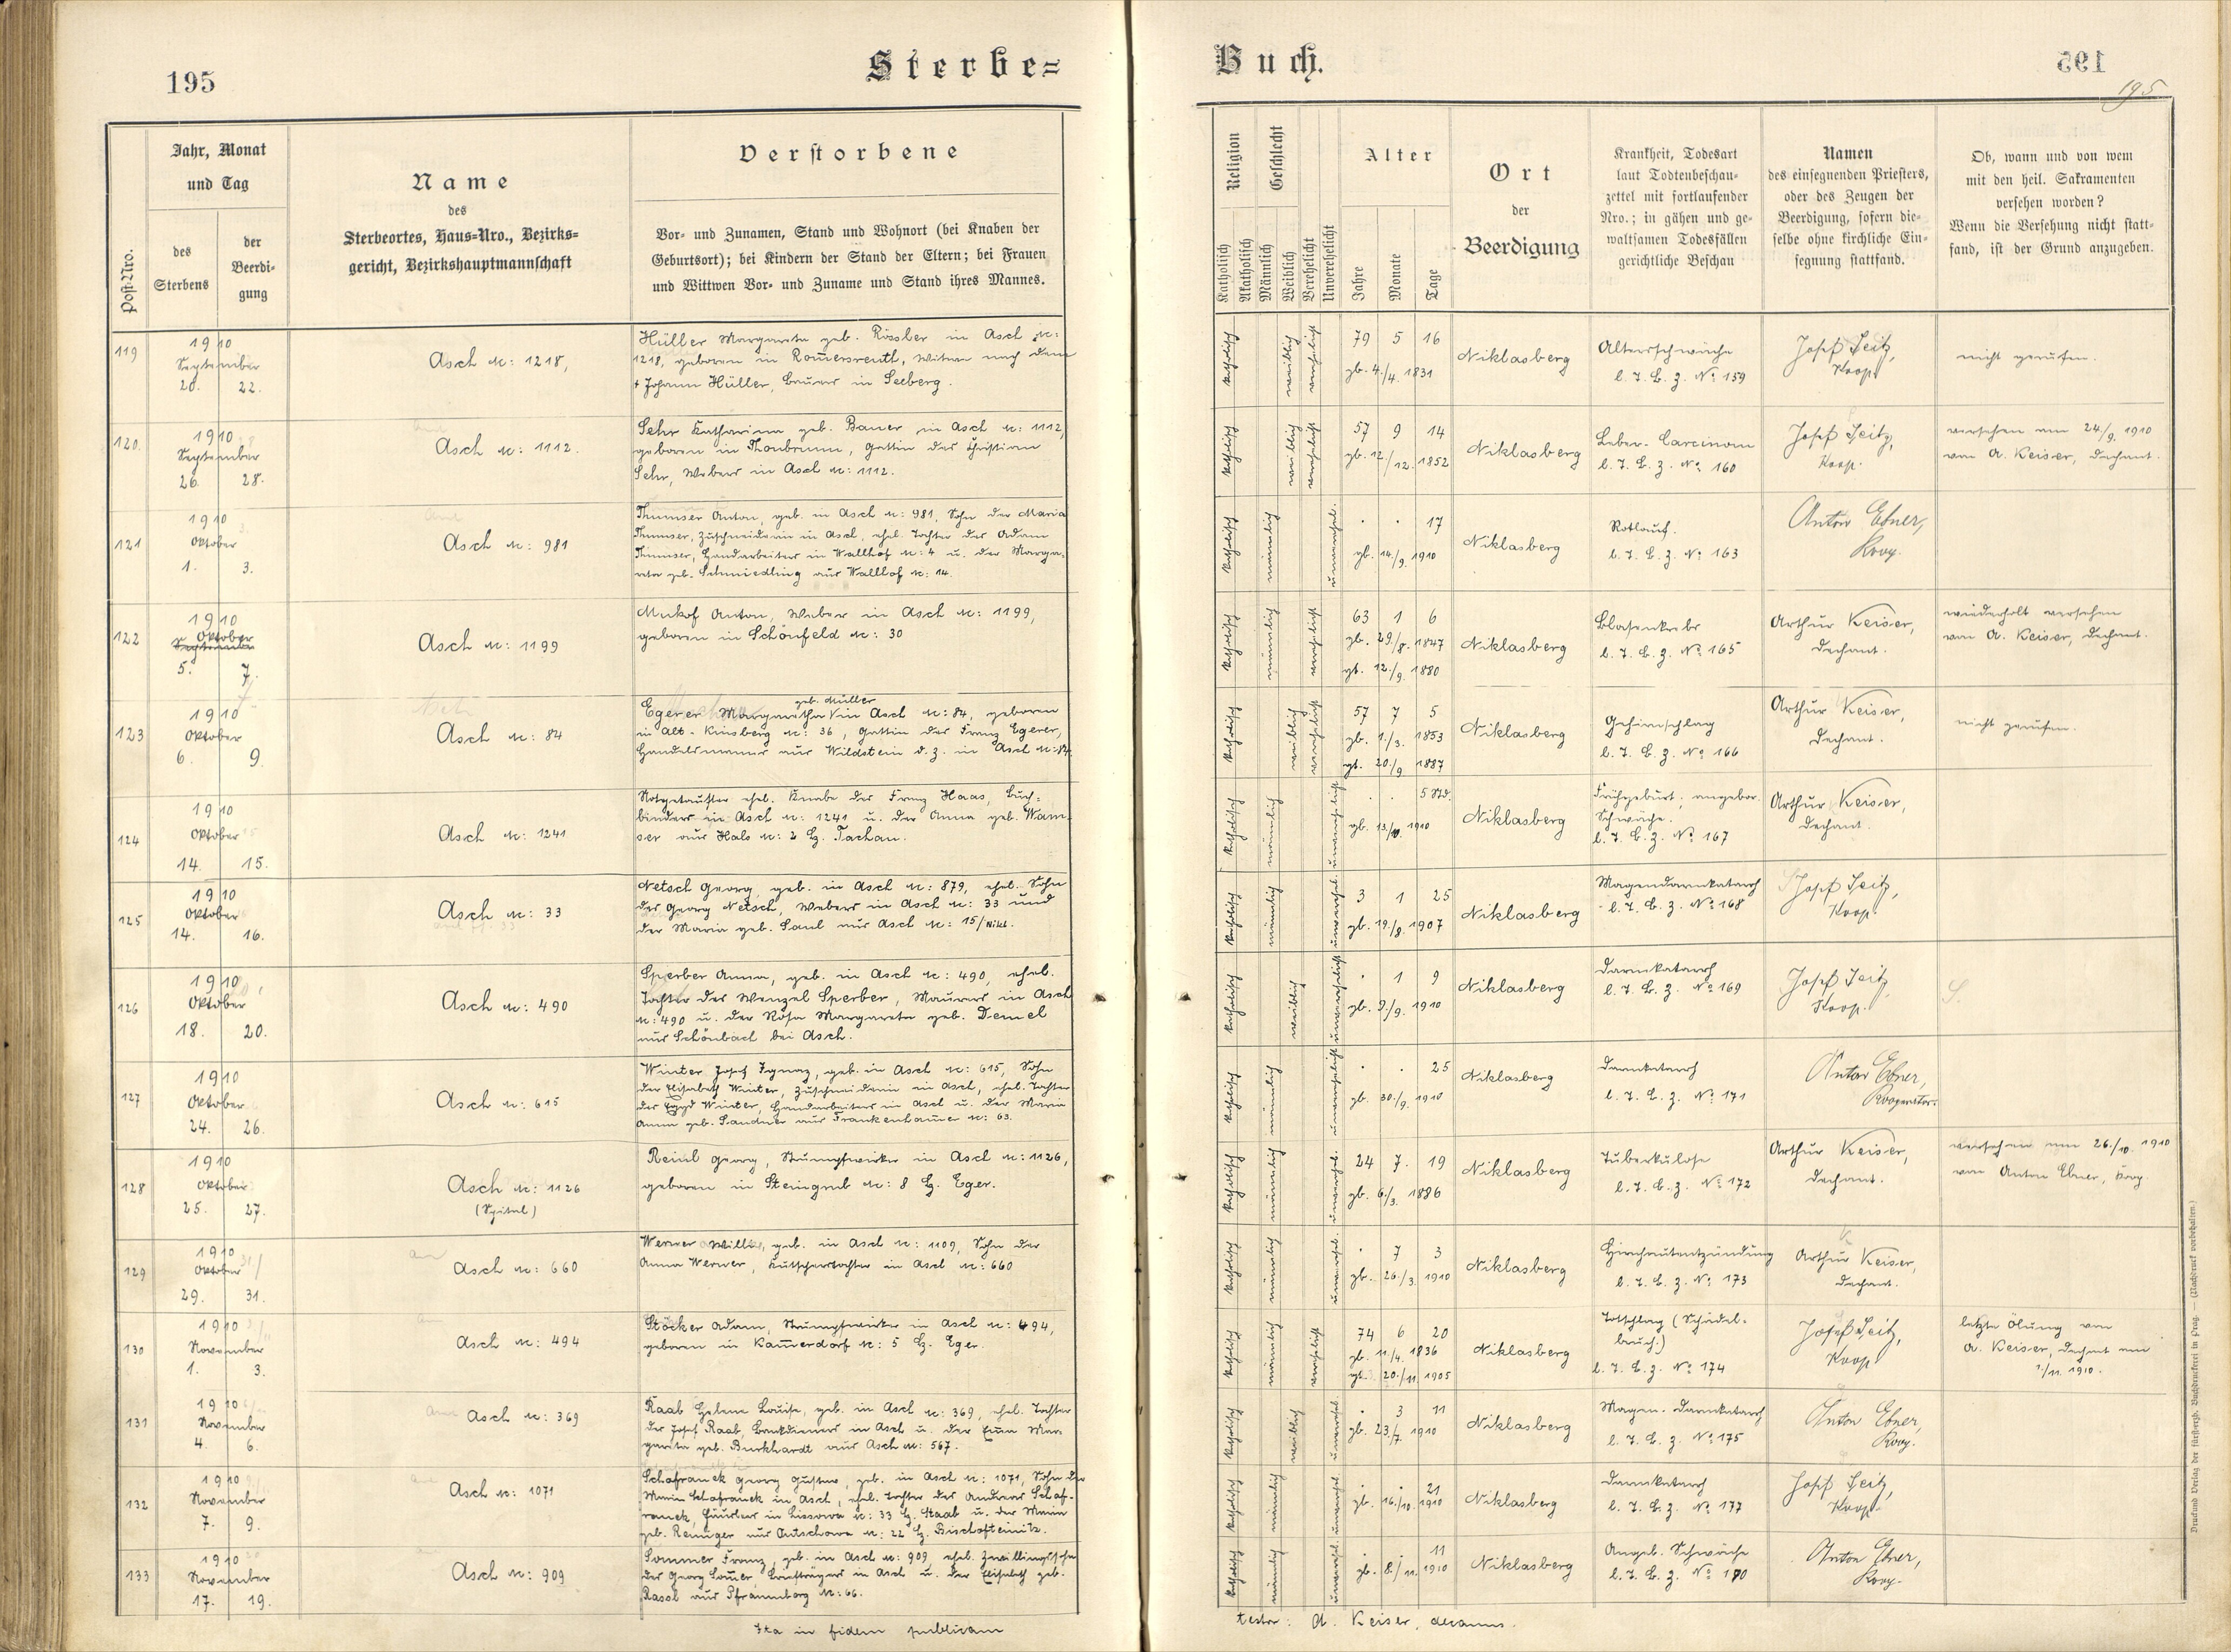 195
Sterbe=
Buch.
195
195
Post-Nro.
Jahr, Monat
und Tag
des
Sterbens
der
Beerdi-
gung
Name
des
Sterbeortes, Haus-Nro., Bezirks=
gericht, Bezirkshauptmannschaft
Verstorbene
Vor- und Zunamen, Stand und Wohnort (bei Knaben der
Geburtsort); bei Kindern der Stand der Eltern; bei Frauen
und Wittwen Vor- und Zuname und Stand ihres Mannes.
Religion
Katholisch
Akatholisch
Geschlecht
Männlich
Weiblich
Verehelicht
Unverehelicht
Alter
Jahre
Monate
Tage
Ort
der
Beerdigung
Krankheit, Todesart
laut Todtenbeschau-
zettel mit fortlaufender
Nro.; in gähen und ge-
waltsamen Todesfällen
gerichtliche Beschau
Namen
des einsegnenden Priesters,
oder des Zeugen der
Beerdigung, sofern die-
selbe ohne kirchliche Ein-
segnung stattfand.
Ob, wann und von wem
mit den heil. Sakramenten
versehen worden?
Wenn die Versehung nicht statt-
fand, ist der Grund anzugeben.
119
1910
September
20. 22.
Asch N: 1218,
Hüller Margareta geb. Rössler in Asch N:
1218, geboren in Romersreuth, Witwe nach dem
† Johann Hüller, Bauers in Seeberg.
katholisch weiblich verehelicht
79 5 16
gb. 4./4. 1831
Niklasberg
Altersschwäche
l. T. B. z. No 159
Josef Seitz,
Koop.
nicht gerufen.
120
1910
September
26. 28.
Asch N: 1112.
Sehr Katharina geb. Bauer in Asch N: 1112,
geboren in Thonbrunn, Gattin des Christian
Sehr, Webers in Asch N: 1112.
katholisch weiblich verehelicht
57 9 14
gb. 12./12. 1852
Niklasberg
Leber-Carcinom
l. T. B. z. No 160
Josef Seitz,
Koop.
versehen am 24./9. 1910
von A. Keiser, Dechant.
121
1910
Oktober
1. 3.
Asch N: 981
Thumser Anton, geb. in Asch N: 981, Sohn der Maria
Thumser, Zuschneiderin in Asch, ehel. Tochter des Adam
Thumser, Handarbeiters in Wallhof N: 4 u. der Marga-
reta geb. Schmiedling aus Wallhof N: 14.
katholisch männlich unverehel.
. . 17
gb. 14./9. 1910
Niklasberg
Rotlauf.
l. T. B. z. No 163
Anton Ebner,
Koop.
122
1910
Oktober
September
5. 7.
Asch N: 1199
Anton, Weber in Asch N: 1199,
geboren in Schönfeld N: 30
katholisch männlich verehelicht
63 1 6
gb. 29./8. 1847
gt. 12./9. 1880
Niklasberg
Blasenkrebs
l. T. B. z. No 165
Arthur Keiser,
Dechant.
wiederholt versehen
von A. Keiser, Dechant.
123
1910
Oktober
6. 9.
Asch N: 84
geb. Müller
Egerer Margaretha in Asch N: 84, geboren
in Alt-Kinsberg N: 36, Gattin des Franz Egerer,
Handelsmanns aus Wildstein d. z. in Asch N: 84.
katholisch weiblich verehelicht
57 7 5
gb. 1./3. 1853
gt. 20./9 1887
Niklasberg
Gehirnschlag
l. T. B. z. No 166
Arthur Keiser,
Dechant.
nicht gerufen.
124
1910
Oktober
14. 15.
Asch N: 1241
Notgetaufter ehel. Knabe des Franz Haas, Buch-
binders in Asch N: 1241 u. der Anna geb. Wam-
ser aus Hals N: 2 Bz. Tachau.
katholisch männlich unverehelicht
. . 5 Std.
gb. 13./10. 1910
Niklasberg
Frühgeburt, angebor.
Schwäche.
l. T. B. z. No 167
Arthur Keiser,
Dechant.
125
1910
Oktober
14. 16.
Asch N: 33
Netsch Georg, geb. in Asch N: 879, ehel. Sohn
des Georg Netsch, Webers in Asch N: 33 und
der Maria geb. Saul aus Asch N: 15/Nikl.
katholisch männlich unverehel.
3 1 25
gb. 19./8. 1907
Niklasberg
Magendarmkatarrh
l. T. B. z. No 168
Josef Seitz,
Koop.
126
1910
Oktober
18. 20.
Asch N: 490
Sperber Anna, geb. in Asch N: 490, ehel.
Tochter des Wenzel Sperber, Maurers in Asch
N: 490 u. der Rosa Margareta geb. Demel
aus Schönbach bei Asch.
katholisch weiblich unverehelicht
. 1 9
gb. 9./9. 1910
Niklasberg
Darmkatarrh
l. T. B. z. No 169
Josef Seitz,
Koop.
127
1910
Oktober
24. 26.
Asch N: 615
Winter Josef Ignaz, geb. in Asch N: 615, Sohn
der Elisabeth Winter, Zuschneiderin in Asch, ehel. Tochter
des Egyd Winter, Handarbeiters in Asch u. der Maria
Anna geb. Sandner aus Frankenhammer N: 63.
katholisch männlich unverehelicht
. . 25
gb. 30./9. 1910
Niklasberg
Darmkatarrh
l. T. B. z. No 171
Anton Ebner,
Kooperator.
128
1910
Oktober
25. 27.
Asch N: 1126
(Spital)
Reinl Georg, Strumpfwirker in Asch N: 1126,
geboren in Steingrub N: 8 Bz. Eger.
katholisch männlich unverehel.
24 7. 19
gb. 6./3. 1886
Niklasberg
Tuberkulose
l. T. B. z. No 172
Arthur Keiser,
Dechant.
versehen am 26./10. 1910
von Anton Ebner, Koop.
129
1910
Oktober
29. 31.
Asch N: 660
Werner Willi, geb. in Asch N: 1109, Sohn der
Anna Werner, Kutscherstochter in Asch N: 660
katholisch männlich unverehel.
. 7 3
gb. 26./3. 1910
Niklasberg
Hirnhautentzündung
l. T. B. z. No 173
Arthur Keiser,
Dechant.
130
1910
November
1. 3.
Asch N: 494
Stöcker Adam, Strumpfwirker in Asch N: 494,
geboren in Kammerdorf N: 5 Bz. Eger.
katholisch männlich verehelicht
74 6 20
gb. 11./4. 1836
gt. 20./11 1905
Niklasberg
Totschlag (Schädel-
bruch.)
l. T. B. z. No 174
Josef Seitz,
Koop.
letzte Ölung von
A. Keiser, Dechant am
1./11. 1910.
131
1910
November
4. 6.
Asch N: 369
Raab Helene Louise, geb. in Asch N: 369, ehel. Tochter
des Josef Raab, Bankdieners in Asch u. der Emma Mar-
gareta geb. Burkhardt aus Asch N: 567.
katholisch weiblich unverehel.
. 3 11
gb. 23./7. 1910
Niklasberg
Magen-Darmkatarrh
l. T. B. z. No 175
Anton Ebner,
Koop.
132
1910
November
7. 9.
Asch N: 1071
Schafranek Georg Gustav, geb. in Asch N: 1071, Sohn der
Maria Schafranek in Asch, ehel. Tochter des Andreas Schaf-
ranek, Häuslers in Lissowa N: 33 Bz. Staab u. der Maria
geb. Reiniger aus Autschowa N: 22 Bz. Bischofteinitz.
katholisch männlich unverehel.
. . 21
gb. 16./10. 1910
Niklasberg
Darmkatarrh
l. T. B. z. No 177
Josef Seitz,
Koop.
133
1910
November
17. 19.
Asch N: 909
Sommer Franz, geb. in Asch N: 909, ehel. Zwillingssohn
des Georg Sommer Briefträgers in Asch u. der Elisabeth geb.
Rassl aus Pfrauenberg N: 66.
katholisch männlich unverehel.
. . 11
gb. 8./11. 1910
Niklasberg
Angeb. Schwäche
l. T. B. z. No
Anton Ebner,
Koop.
Ita in fidem publicam
testor: A. Keiser, decanus.
Druck und Verlag der fürsterzb. Buchdruckerei in Prag. — (Nachdruck vorbehalten.)